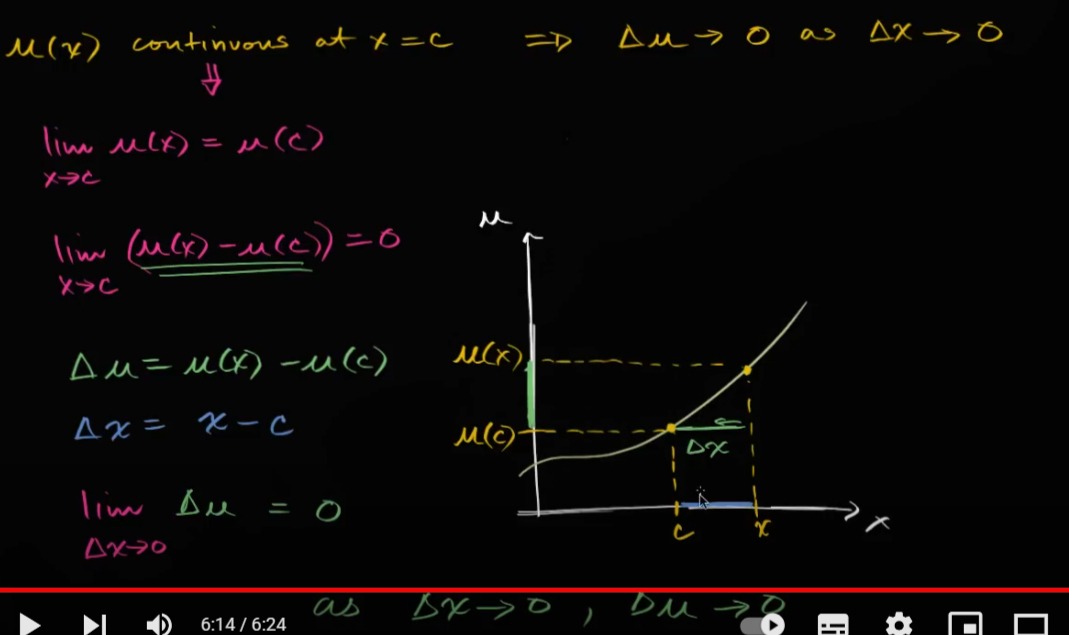 u(x) continuous at x = c ⇒ Δu → 0 as Δx → 0
⇓
lim u(x) = u(c)
x→c
lim (u(x) - u(c)) = 0
x→c
Δu = u(x) - u(c)
Δx = x - c
lim Δu = 0
Δx→0
u
u(x)
u(c)
Δx
c
x
x
as Δx → 0 , Δu → 0
6:14 / 6:24